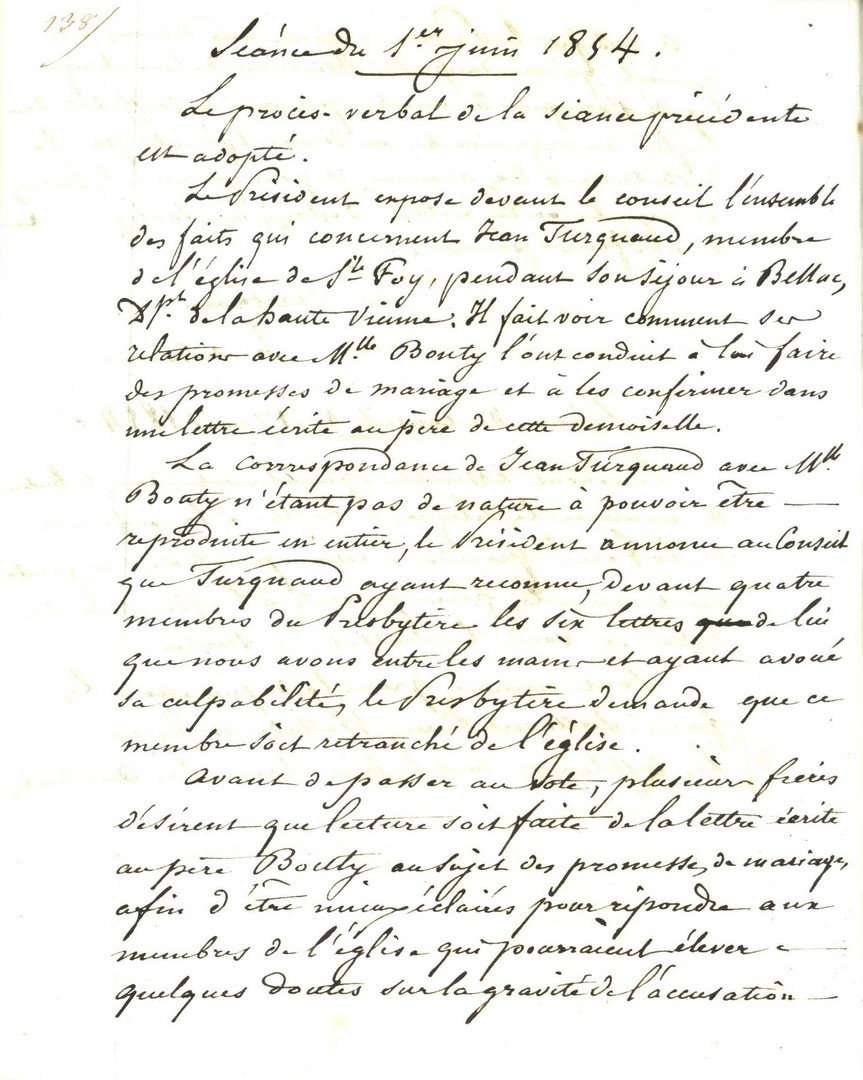 138/
Séance du 1er juin 1854.
Le procès-verbal de la séance précédente
est adopté.
Le Président expose devant le conseil l'ensemble
des faits qui concernent Jean Turgnaud, membre
de l'église de Ste Foy, pendant son séjour à Bellac,
Dpt. de la haute Vienne. Il fait voir comment ses
relations avec Mlle Bouty l'ont conduit à lui faire
des promesses de mariage et à les confirmer dans
une lettre écrite au père de cette demoiselle.
La correspondance de Jean Turgnaud avec Mlle
Bouty n'étant pas de nature à pouvoir être
reproduite en entier, le Président annonce au Conseil
que Turgnaud ayant reconnu, devant quatre
membres du Presbytère les six lettres que de lui
que nous avons entre les mains et ayant avoué
sa culpabilité, le Presbytère demande que ce
membre soit retranché de l'église.
Avant de passer au vote, plusieurs frères
désirent que lecture soit faite de la lettre écrite
au père Bouty au sujet des promesses de mariage,
afin d'être mieux éclairés pour répondre aux
membres de l'église qui pourraient élever
quelques doutes sur la gravité de l'accusation